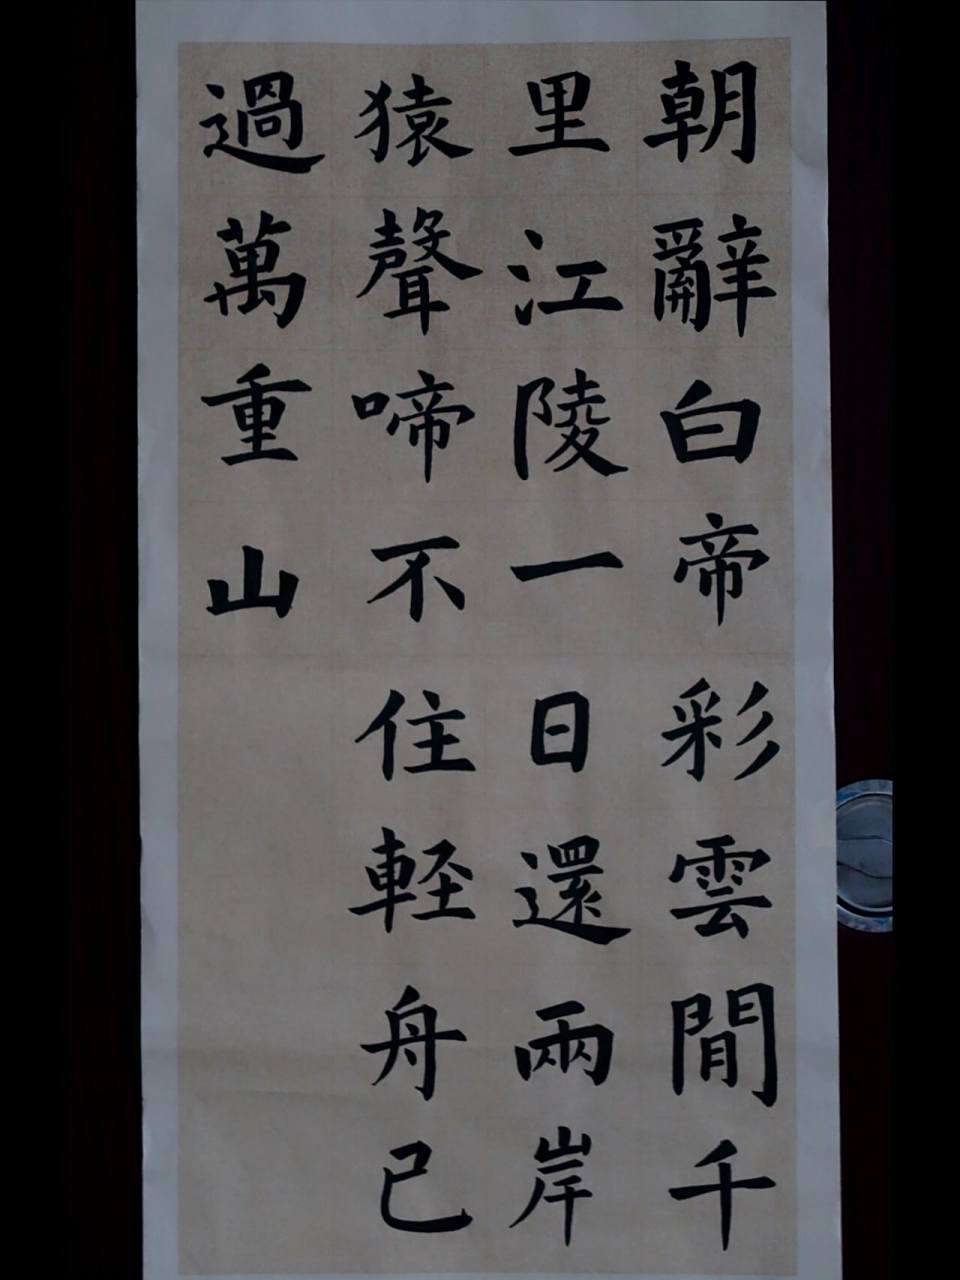 朝辭白帝彩雲閒千
里江陵一日還兩岸
猿聲啼不住軽舟已
過萬重山